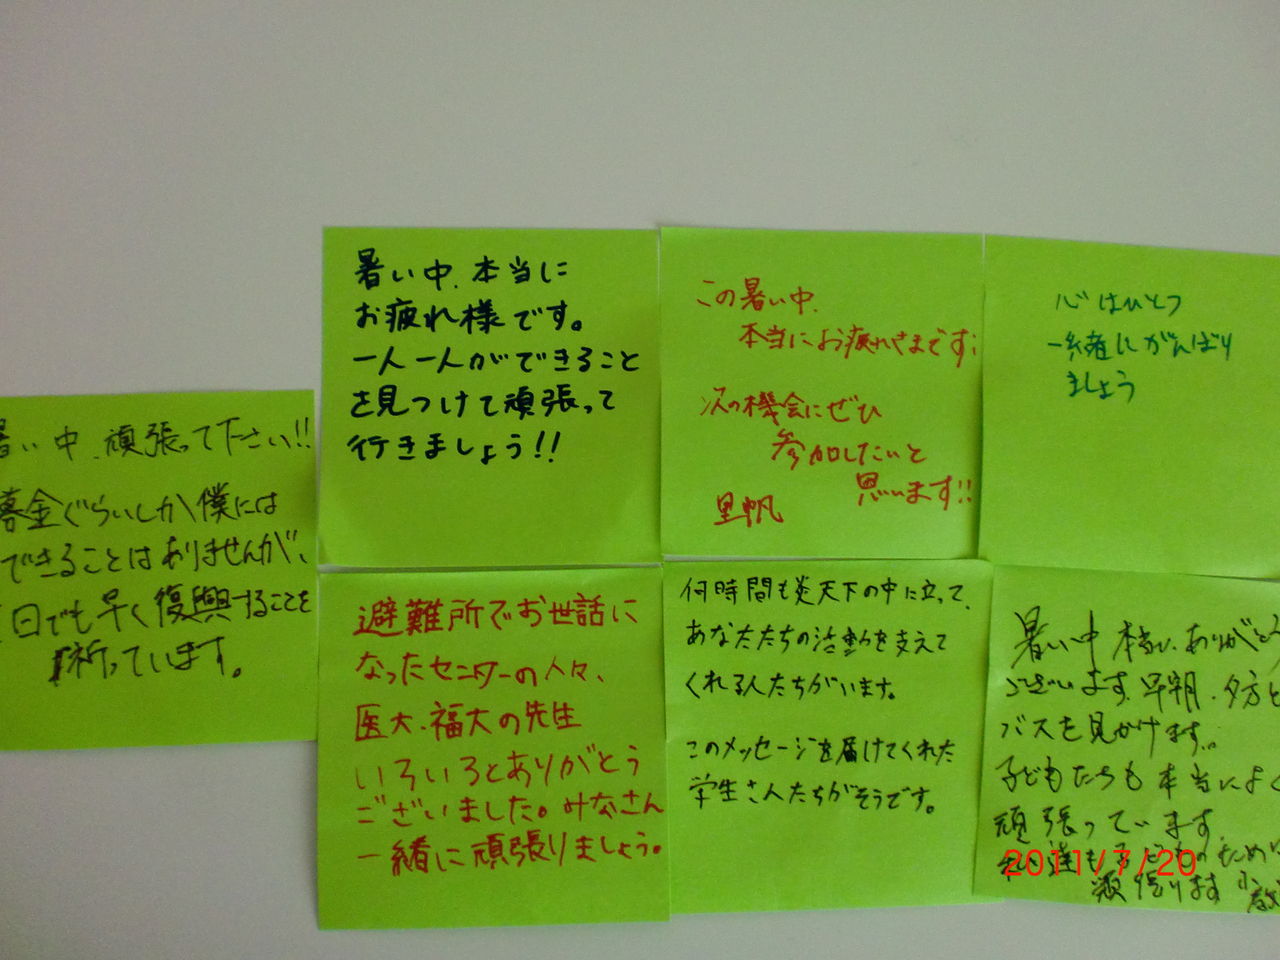 暑い中、頑張って下さい!!
募金ぐらいしか僕には
できることはありませんが、
1日でも早く復興することを
祈っています。
暑い中、本当に
お疲れ様です。
一人一人ができること
を見つけて頑張って
行きましょう!!
この暑い中、
本当にお疲れさまです;
次の機会にぜひ
参加したいと
思います!!
里帆
心はひとつ
一緒にがんばり
ましょう
避難所でお世話に
なったセンターの人々、
医大、福大の先生
いろいろとありがとう
ございました。みなさん
一緒に頑張りましょう。
何時間も炎天下の中に立って、
あなたたちの活動を支えて
くれる人たちがいます。
このメッセージを届けてくれた
学生さんたちがそうです。
暑い中 本当に、ありがとう
ございます。早朝、夕方と
バスを見かけます。
子どもたちも本当によく
頑張っています。
私達も子どものために
頑張ります
2011/7/20